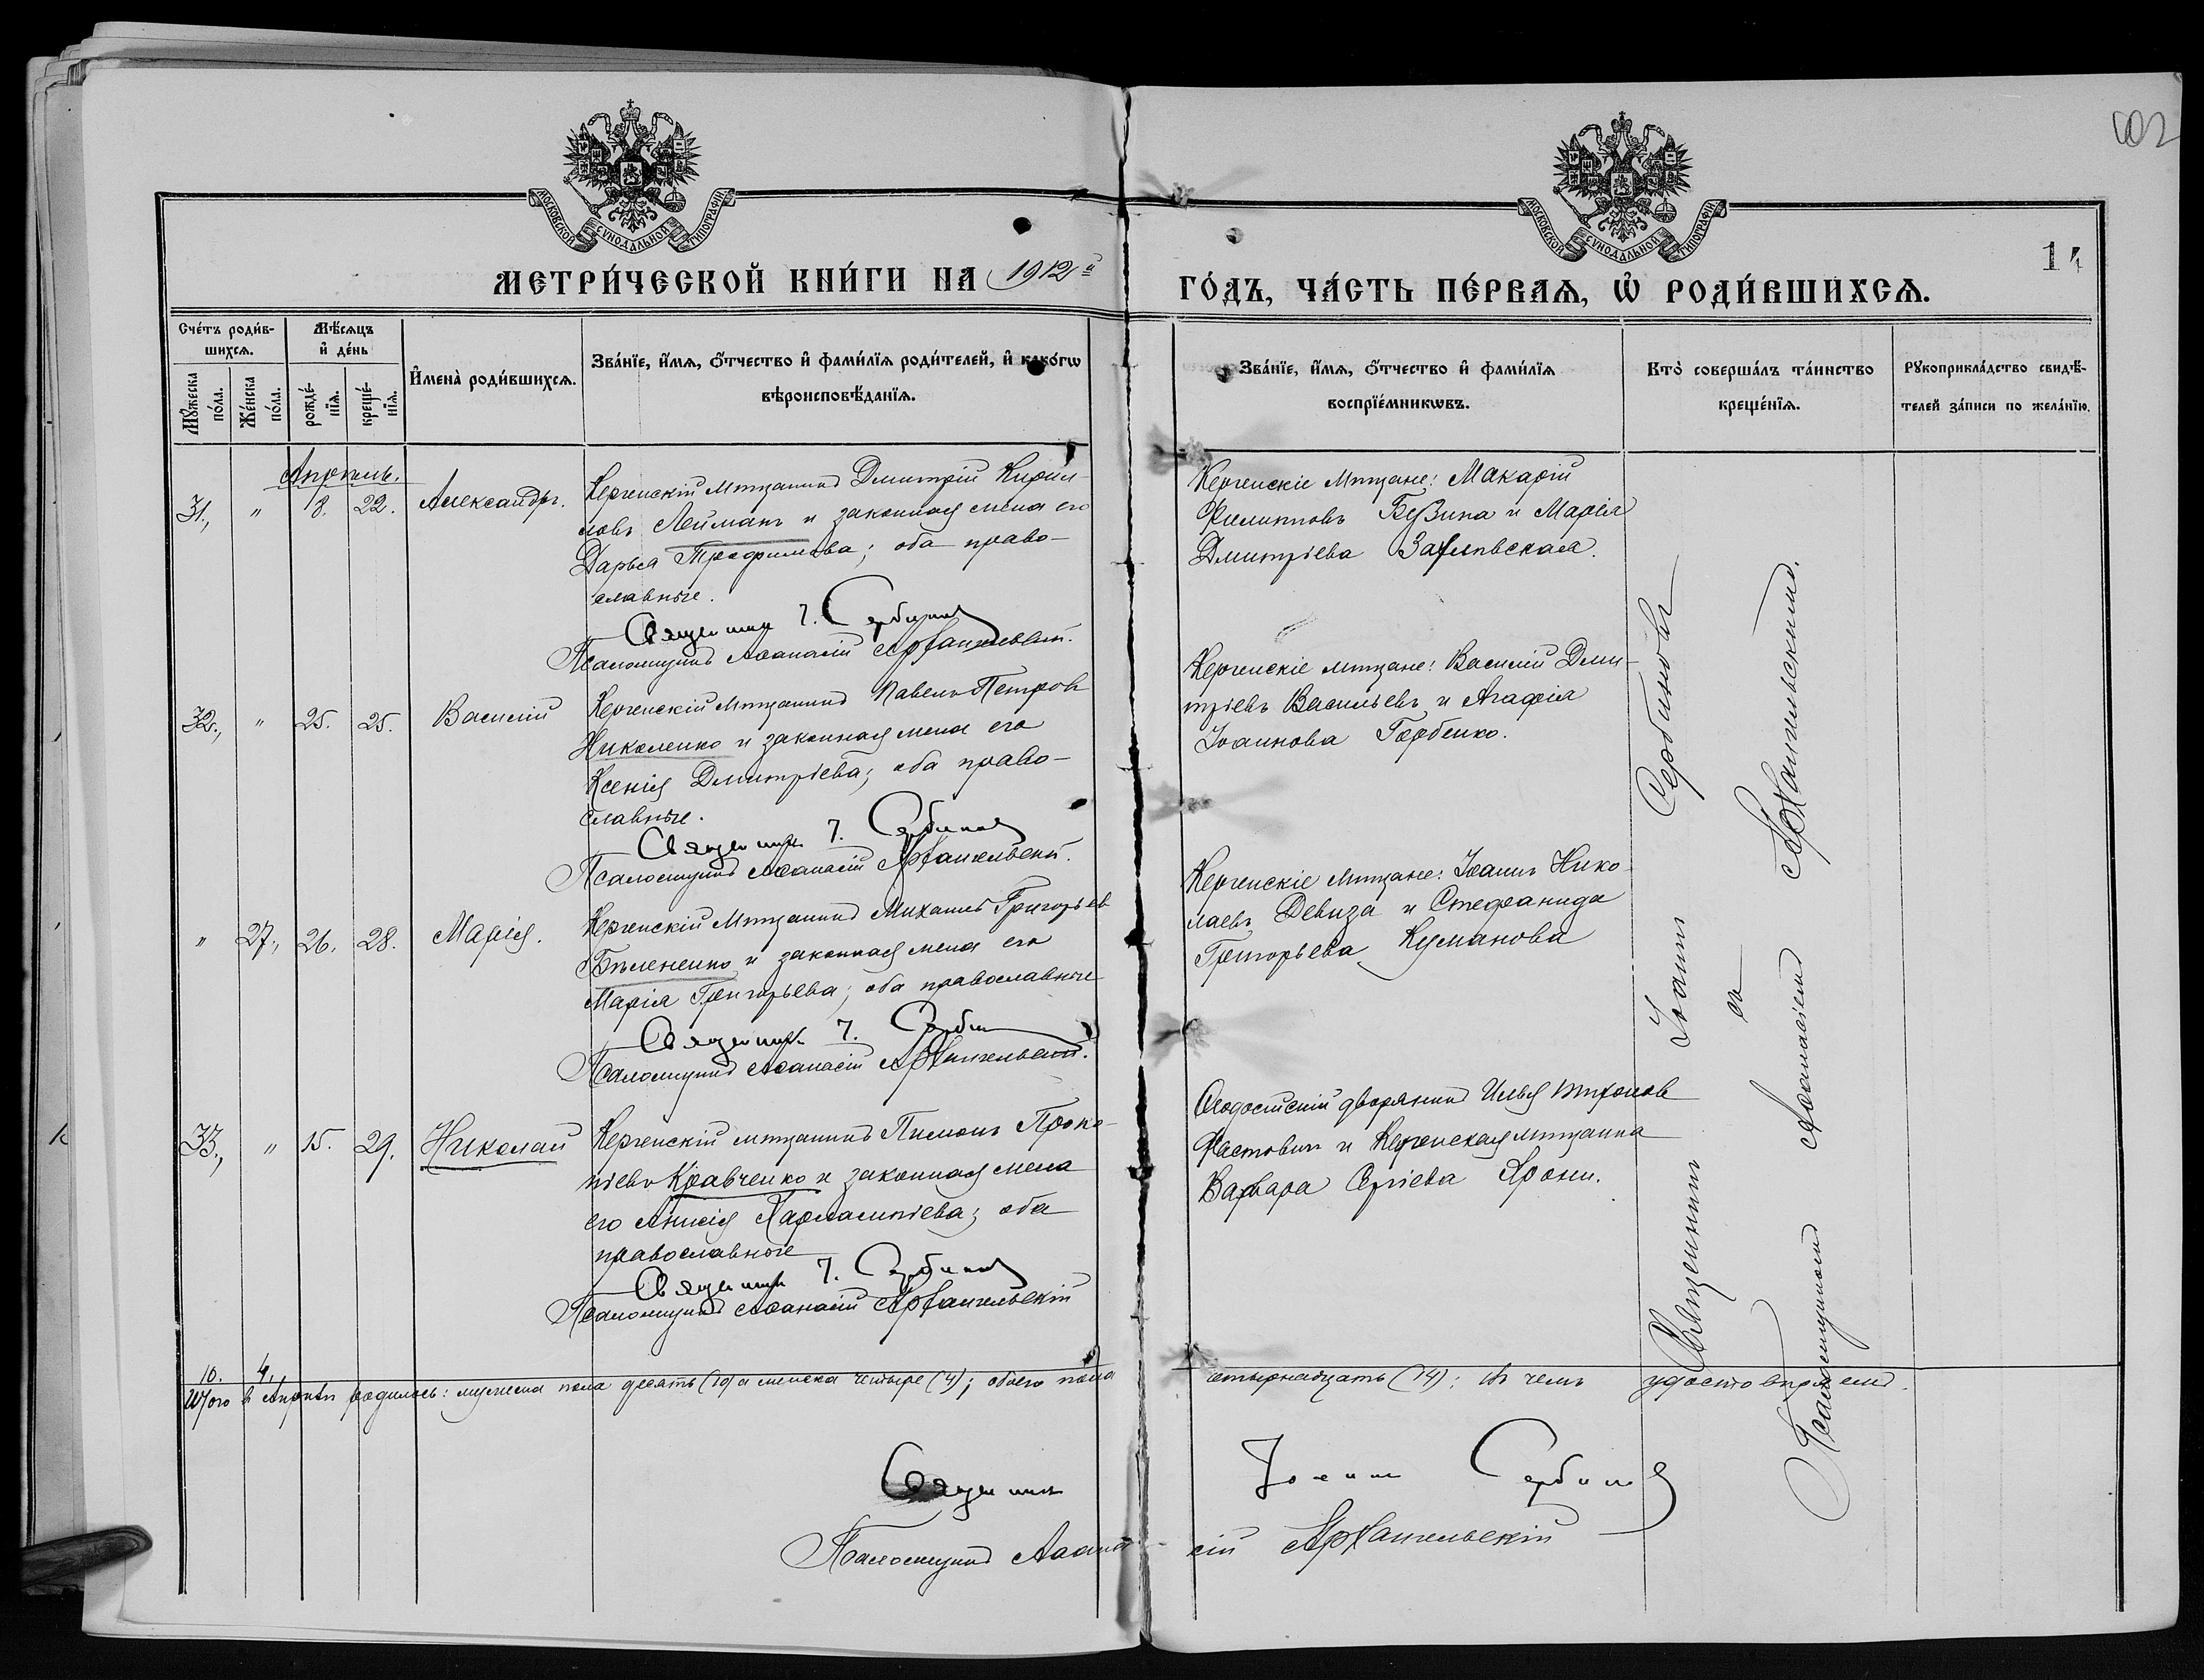 602
МОСКОВСКОЙ СѴНОДАЛЬНОЙ ТИПОГРАФІИ
МОСКОВСКОЙ СѴНОДАЛЬНОЙ ТИПОГРАФІИ
МЕТРИ́ЧЕСКОЙ КНИ́ГИ НА 1912й
ГО́ДЪ, ЧА́СТЬ ПЕ́РВАѦ, Ѡ҆ РОДИ́ВШИХСѦ.
14
Сче́тъ роди́в-
шихсѧ.
Мꙋ́жеска
по́ла.
Же́нска
по́ла.
Мѣ́сѧцъ
и҆ де́нь
рожде́-
нїѧ.
креще́-
нїѧ.
И҆мена̀ роди́вшихсѧ.
Зва́нїе, и҆́мѧ, ѻ҆́тчество и҆ фами́лїѧ роди́телей, и҆ како́гѡ
вѣроисповѣ́данїѧ.
Зва́нїе, и҆́мѧ, ѻ҆́тчество и҆ фами́лїѧ
воспрїе́мникѡвъ.
Кто̀ соверша́лъ та́инство
креще́нїѧ.
Рꙋкоприкла́дство свидѣ́-
телей за́писи по жела́нїю.
Апрѣль.
31., " 8. 22. Александръ.
Керченскій мѣщанинъ Дмитрій Кирил-
ловъ Лейманъ и законная жена его
Дарья Трофимова; оба право-
славные.
Священникъ І. Сербиновъ
Псаломщикъ Аѳанасій Архангельскій.
Керченскіе мѣщане: Макарій
Филипповъ Бузина и Марія
Дмитріева
32., " 25. 25. Василій
Керченскій мѣщанинъ Павелъ Петровъ
Николенко и законная жена его
Ксенія Дмитріева; оба право-
славные.
Священникъ І. Сербиновъ
Псаломщикъ Аѳанасій Архангельскій.
Керченскіе мѣщане: Василій Дми-
тріевъ Васильевъ и Агафія
Іоаннова Горбенко.
" 27., 26. 28. Марія.
Керченскій мѣщанинъ Михаилъ Григорьев
Бѣлененко и законная жена его
Марія Григорьева; оба православные
Священникъ І. Сербиновъ
Псаломщикъ Аѳанасій Архангельскій.
Керченскіе мѣщане: Іоаннъ Нико-
лаевъ Девиза и Стефанида
Григорьева Куманова
33., " 15. 29. Николай
Керченскій мѣщанинъ Пименъ Проко-
піевъ Кравченко и законная жена
его Анисія Харлампіева; оба
православные
Священникъ І. Сербиновъ
Псаломщикъ Аѳанасій Архангельскій
Ѳеодосійскій дворянинъ Илья Тихоновъ
Фастовичъ и Керченская мѣщанка
Варвара Сергіева
Священникъ Іоаннъ Сербиновъ
съ
Псаломщикомъ Аѳанасіемъ Архангельскимъ.
10. 4.
Итого въ Апрѣлѣ родилось: мужеска пола десять (10) а женска четыре (4); обоего пола четырнадцать (14); въ чемъ удостовѣряемъ.
Священникъ Іоаннъ Сербиновъ
Псаломщикъ Аѳанасій Архангельскій